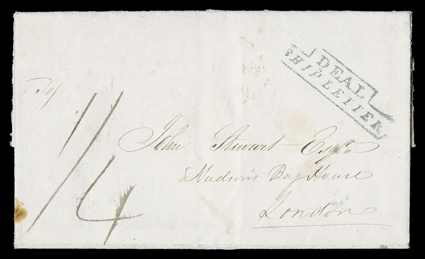 DEAL
SHIP LETTER
1/4
John Stewart Esqre
Hudson's Bay House
London